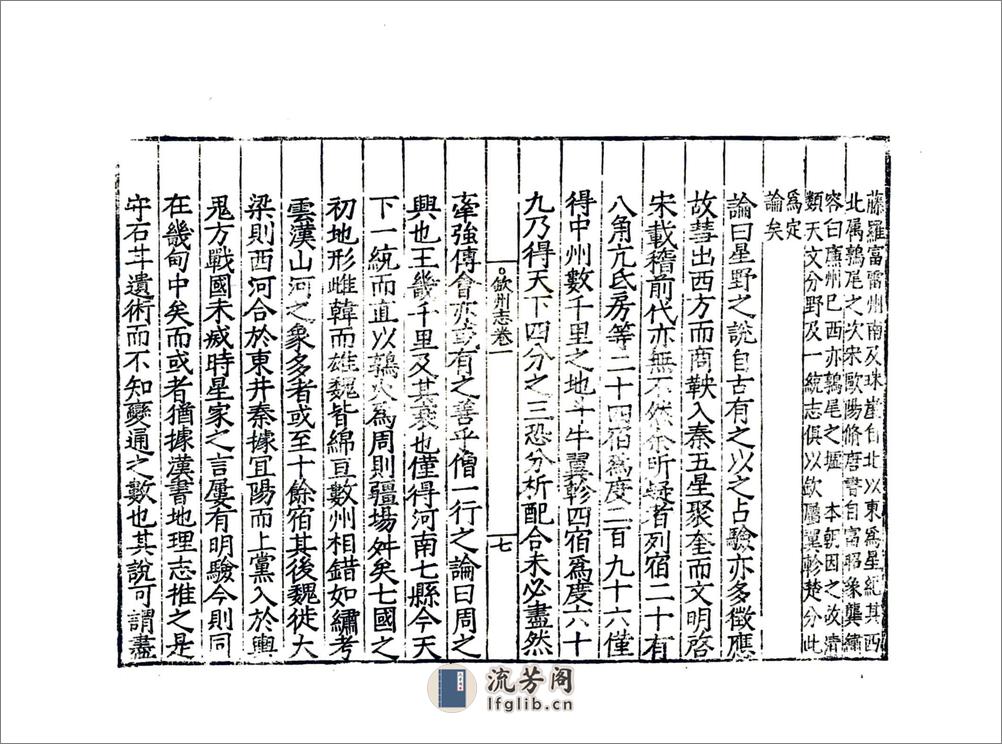 藤羅富雷州南及珠崖自北以東爲星紀其西
北屬鶉尾之次宋歐陽脩唐書自富昭象龔繡
容曰廉州已西亦鶉尾之墟 本朝因之故清
類天文分野及一統志俱以欽屬翼軫楚分此
爲定
論矣
論曰星野之說自古有之以之占驗亦多徵應
故彗出西方而商鞅入秦五星聚奎而文明啓
宋載稽前代亦無不然尒所疑者列宿二十有
八角亢氐房等二十四宿爲度二百九十六僅
得中州數千里之地斗牛翼軫四宿爲度六十
九乃得天下四分之三恐分析配合未必盡然
欽州志卷一
七
牽強傳會亦或有之善乎僧一行之論曰周之
興也王畿千里及其衰也僅得河南七縣今天
下一統而直以鶉火爲周則疆場舛矣七國之
初地形雌韓而雄魏皆綿亘數州相錯如繡考
雲漢山河之象多者或至十餘宿其後魏徙大
梁則西河合於東井秦據宜陽而上黨入於輿
鬼方戰國未滅時星家之言屢有明驗今則同
在畿甸中矣而或者猶據漢書地理志推之是
守石甘遺術而不知變通之數也其說可謂盡
流芳阁
lfglib.cn